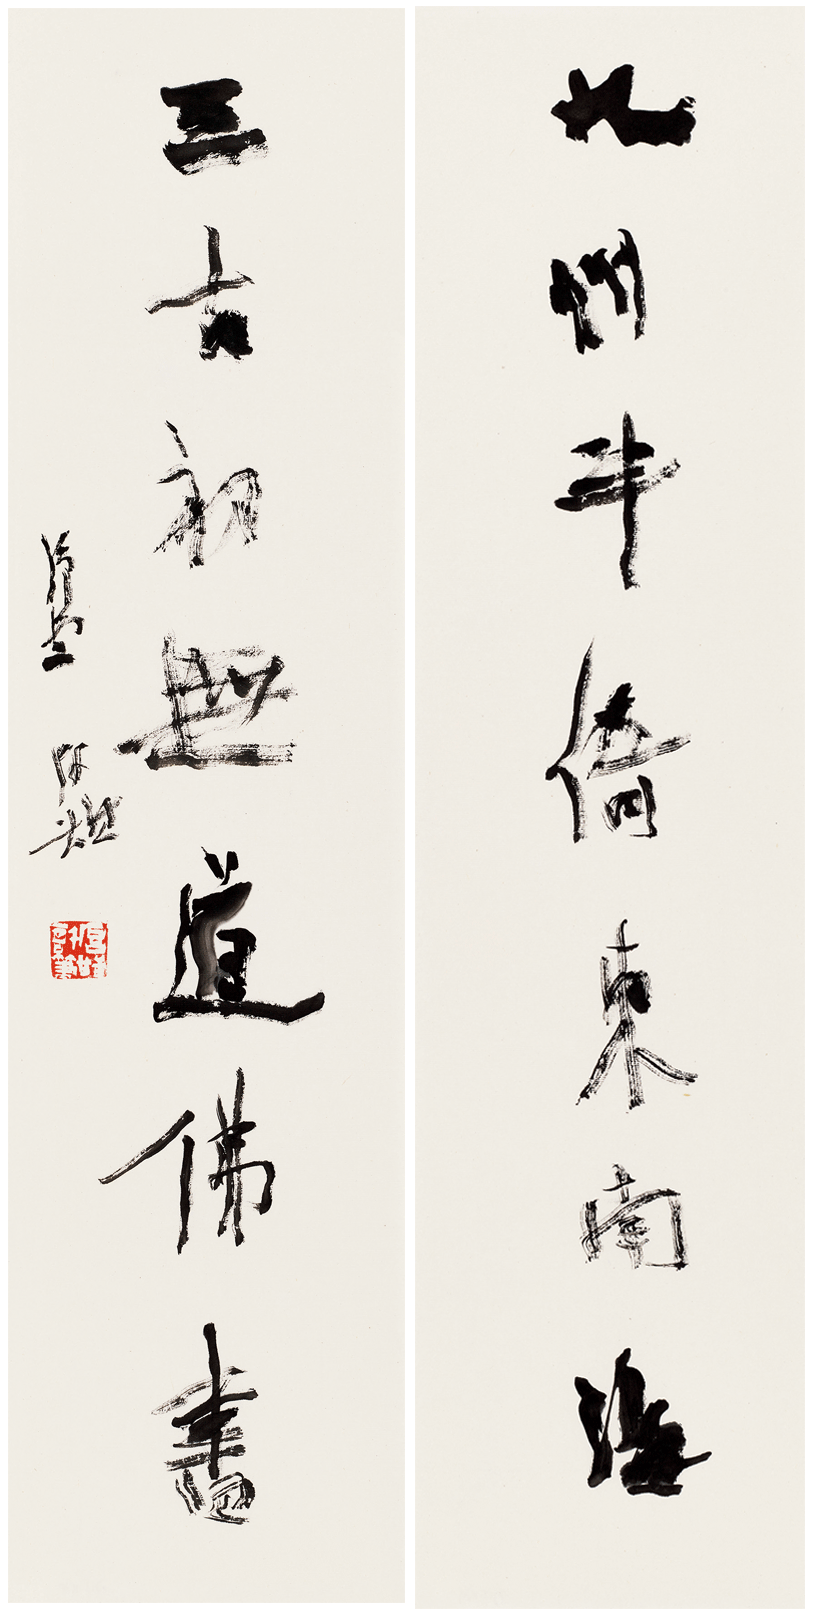 九州斗倚東南海
三古初無道佛書